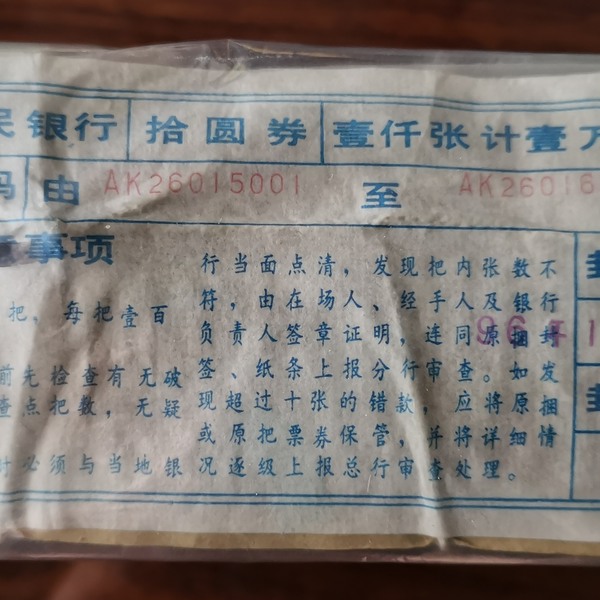 民银行 拾圆券 壹仟张计壹万
码 由 AK26015001 至 AK26016
意事项
行当面点清，发现把内张数不
把，每把壹百 符，由在场人、经手人及银行
负责人签章证明，连同原捆封
96年1
前先检查有无破 签、纸条上报分行审查。如发
查点把数，无疑 现超过十张的错款，应将原捆
或原把票券保管，并将详细情
时必须与当地银 况逐级上报总行审查处理。
封
封